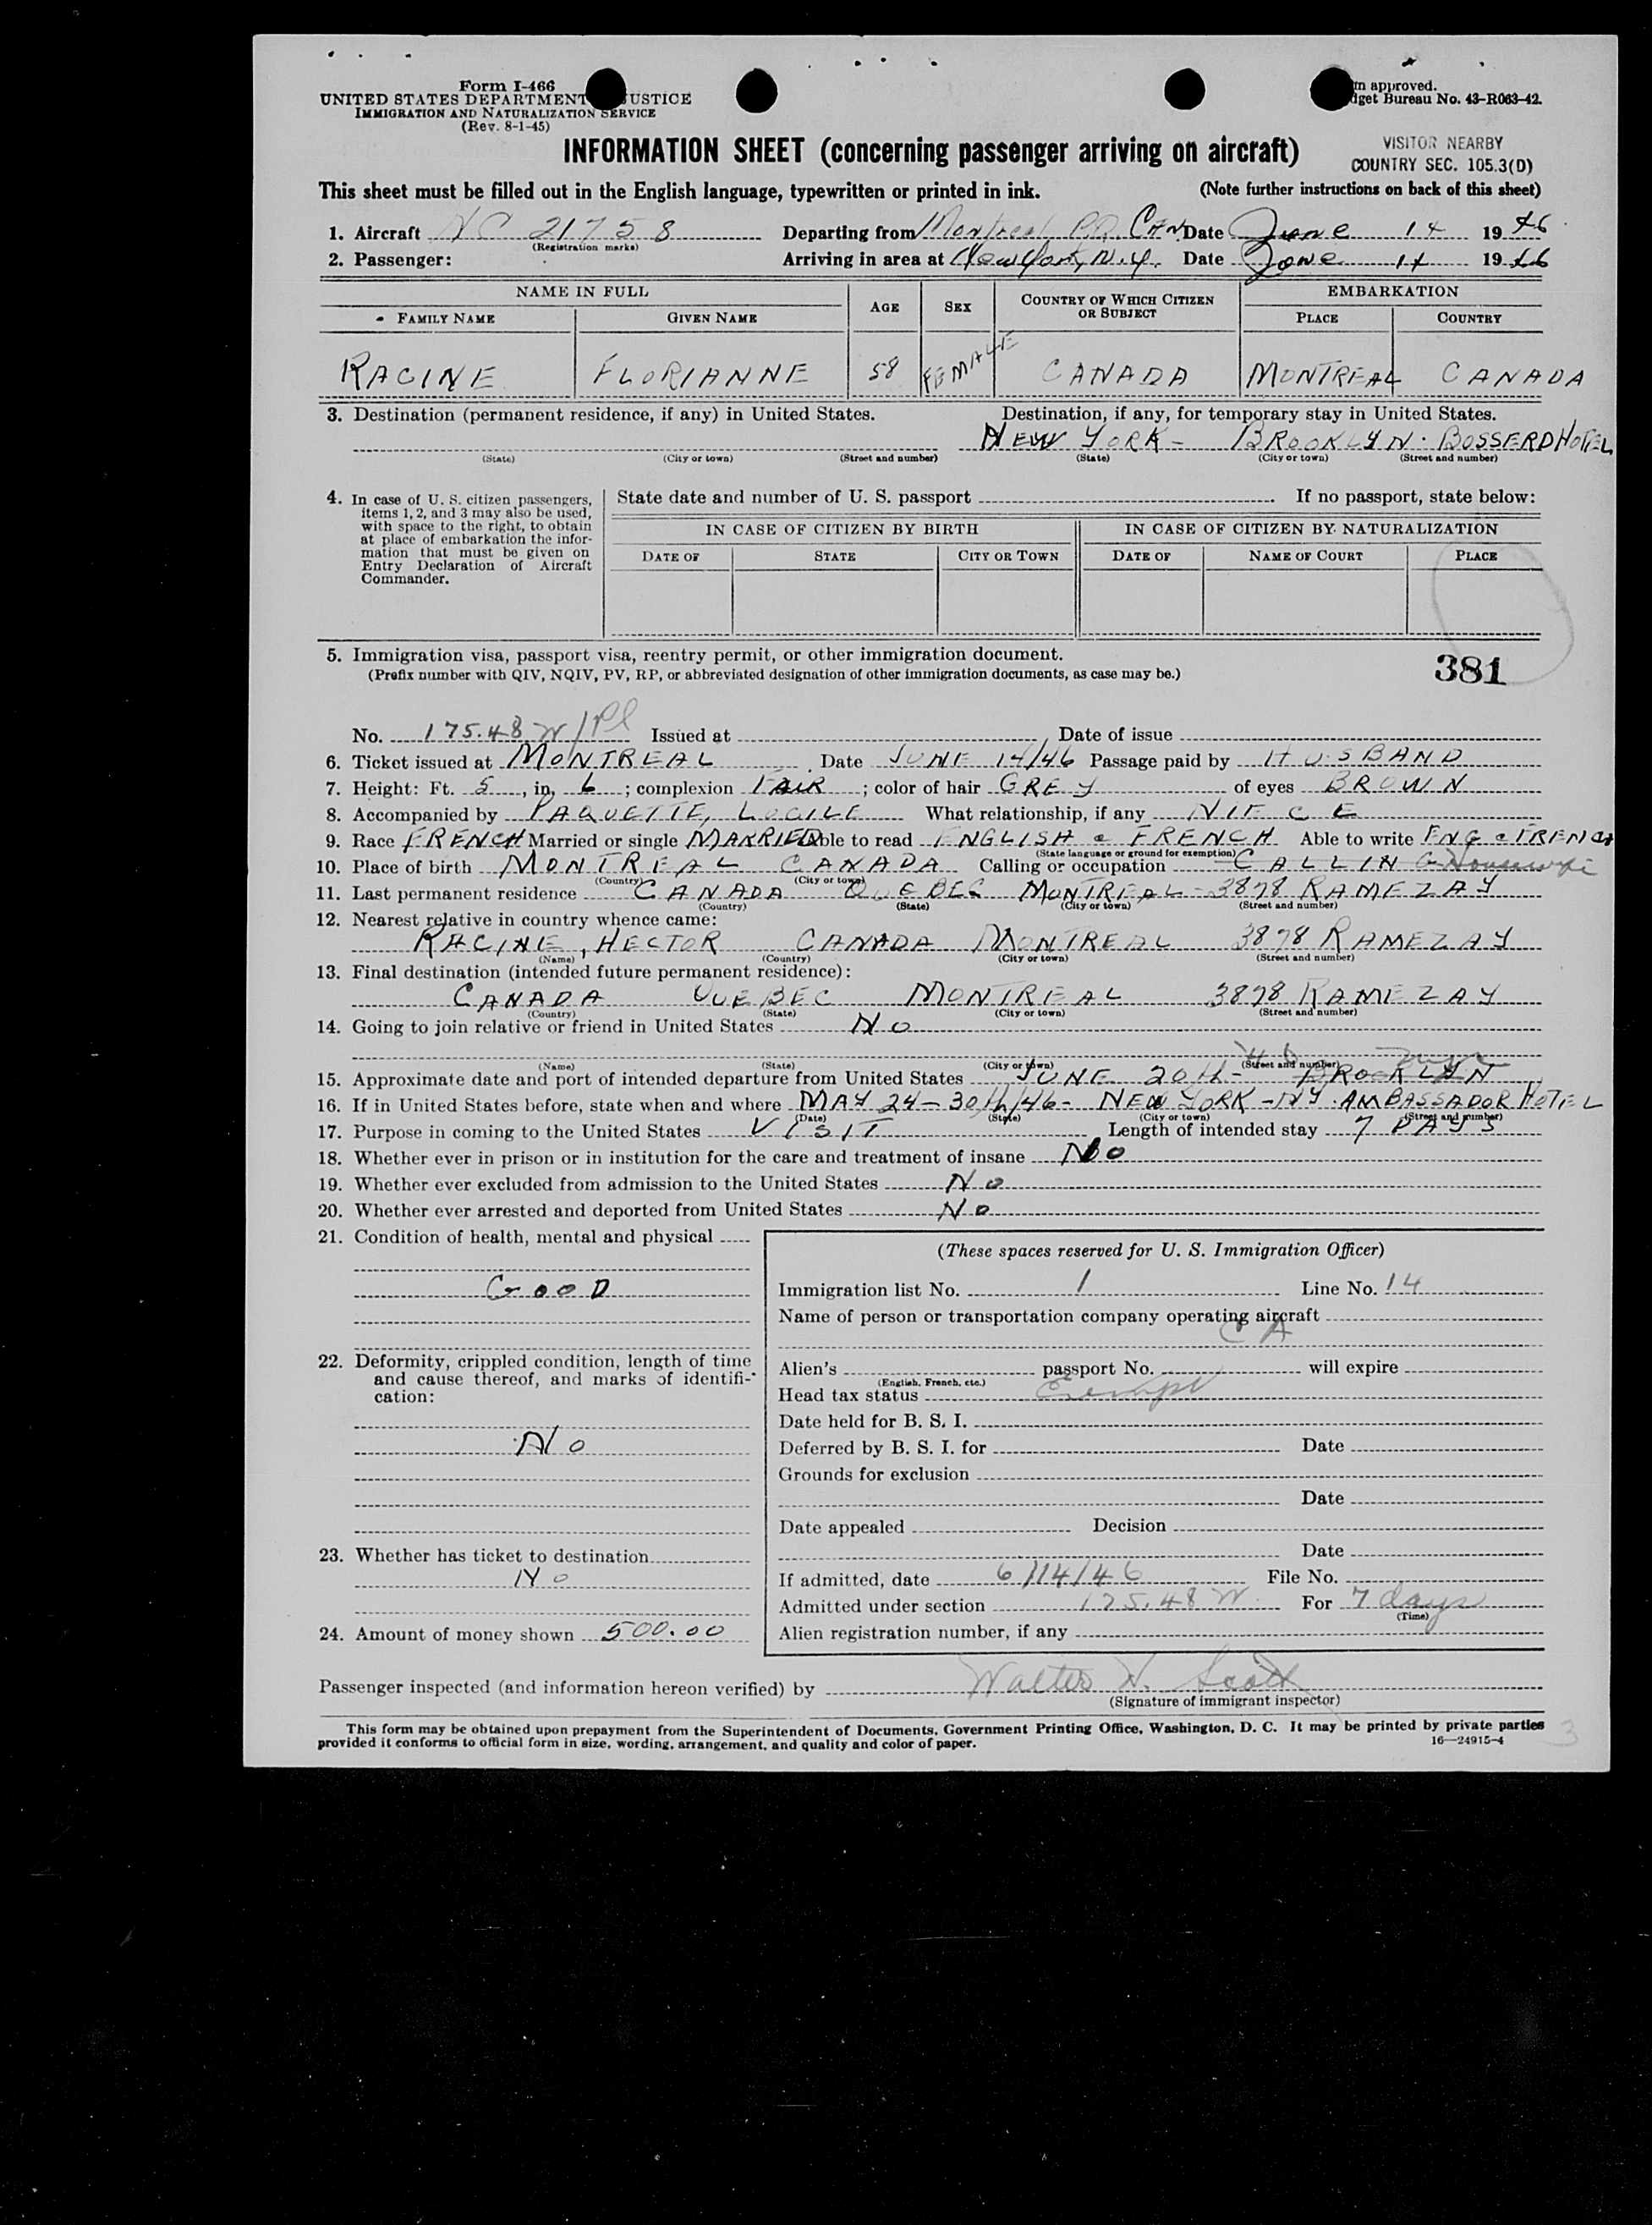 Form I-466
UNITED STATES DEPARTMENT USTICE
IMMIGRATION AND NATURALIZATION SERVICE
(Rev. 8-1-45)
m approved.
dget Bureau No. 43-R063-42.
INFORMATION SHEET (concerning passenger arriving on aircraft)
VISITOR NEARBY
COUNTRY SEC. 105.3(D)
This sheet must be filled out in the English language, typewritten or printed in ink. (Note further instructions on back of this sheet)
1. Aircraft NC 21758 Departing from Montreal PQ CAN Date June 14 1946
(Registration marks)
2. Passenger: Arriving in area at New York, N.Y. Date June 14 1946
NAME IN FULL AGE SEX COUNTRY OF WHICH CITIZEN OR SUBJECT EMBARKATION
FAMILY NAME GIVEN NAME PLACE COUNTRY
RACINE FLORIANNE 58 FEMALE CANADA MONTREAL CANADA
3. Destination (permanent residence, if any) in United States. Destination, if any, for temporary stay in United States.
NEW YORK - BROOKLYN. BOSSERD HOTEL
(State) (City or town) (Street and number) (State) (City or town) (Street and number)
4. In case of U. S. citizen passengers, items 1, 2, and 3 may also be used, with space to the right, to obtain at place of embarkation the information that must be given on Entry Declaration of Aircraft Commander.
State date and number of U. S. passport If no passport, state below:
IN CASE OF CITIZEN BY BIRTH IN CASE OF CITIZEN BY NATURALIZATION
DATE OF STATE CITY OR TOWN DATE OF NAME OF COURT PLACE
5. Immigration visa, passport visa, reentry permit, or other immigration document.
(Prefix number with QIV, NQIV, PV, RP, or abbreviated designation of other immigration documents, as case may be.)
381
No. 175.48 W/Pl Issued at Date of issue
6. Ticket issued at MONTREAL Date JUNE 14/46 Passage paid by HUSBAND
7. Height: Ft. 5, in. 6; complexion FAIR; color of hair GREY of eyes BROWN
8. Accompanied by PAQUETTE, LUCILE What relationship, if any NIECE
9. Race FRENCH Married or single MARRIED Able to read ENGLISH & FRENCH Able to write ENG & FRENCH
(State language or ground for exemption)
10. Place of birth MONTREAL CANADA Calling or occupation CALLING Housewife
(Country) (City or town)
11. Last permanent residence CANADA QUEBEC MONTREAL - 3878 RAMEZAY
(Country) (State) (City or town) (Street and number)
12. Nearest relative in country whence came:
RACINE, HECTOR CANADA MONTREAL 3878 RAMEZAY
(Name) (Country) (City or town) (Street and number)
13. Final destination (intended future permanent residence):
CANADA QUEBEC MONTREAL 3878 RAMEZAY
(Country) (State) (City or town) (Street and number)
14. Going to join relative or friend in United States NO
(Name) (State) (City or town) (Street and number)
15. Approximate date and port of intended departure from United States JUNE 20th - BROOKLYN
16. If in United States before, state when and where MAY 24-30th/46 - NEW YORK - NY. AMBASSADOR HOTEL
(Date) (State) (City or town) (Street and number)
17. Purpose in coming to the United States VISIT Length of intended stay 7 DAYS
18. Whether ever in prison or in institution for the care and treatment of insane NO
19. Whether ever excluded from admission to the United States NO
20. Whether ever arrested and deported from United States NO
21. Condition of health, mental and physical
GOOD
22. Deformity, crippled condition, length of time and cause thereof, and marks of identification:
NO
23. Whether has ticket to destination
NO
24. Amount of money shown 500.00
(These spaces reserved for U. S. Immigration Officer)
Immigration list No. 1 Line No. 14
Name of person or transportation company operating aircraft
C A
Alien's passport No. will expire
(English, French, etc.)
Head tax status Exempt
Date held for B. S. I.
Deferred by B. S. I. for Date
Grounds for exclusion
Date
Date appealed Decision
Date
If admitted, date 6/14/46 File No.
Admitted under section 175.48 W For 7 days
(Time)
Alien registration number, if any
Passenger inspected (and information hereon verified) by Walter N. Scott
(Signature of immigrant inspector)
This form may be obtained upon prepayment from the Superintendent of Documents, Government Printing Office, Washington, D. C. It may be printed by private parties
provided it conforms to official form in size, wording, arrangement, and quality and color of paper.
16—24915-4
3